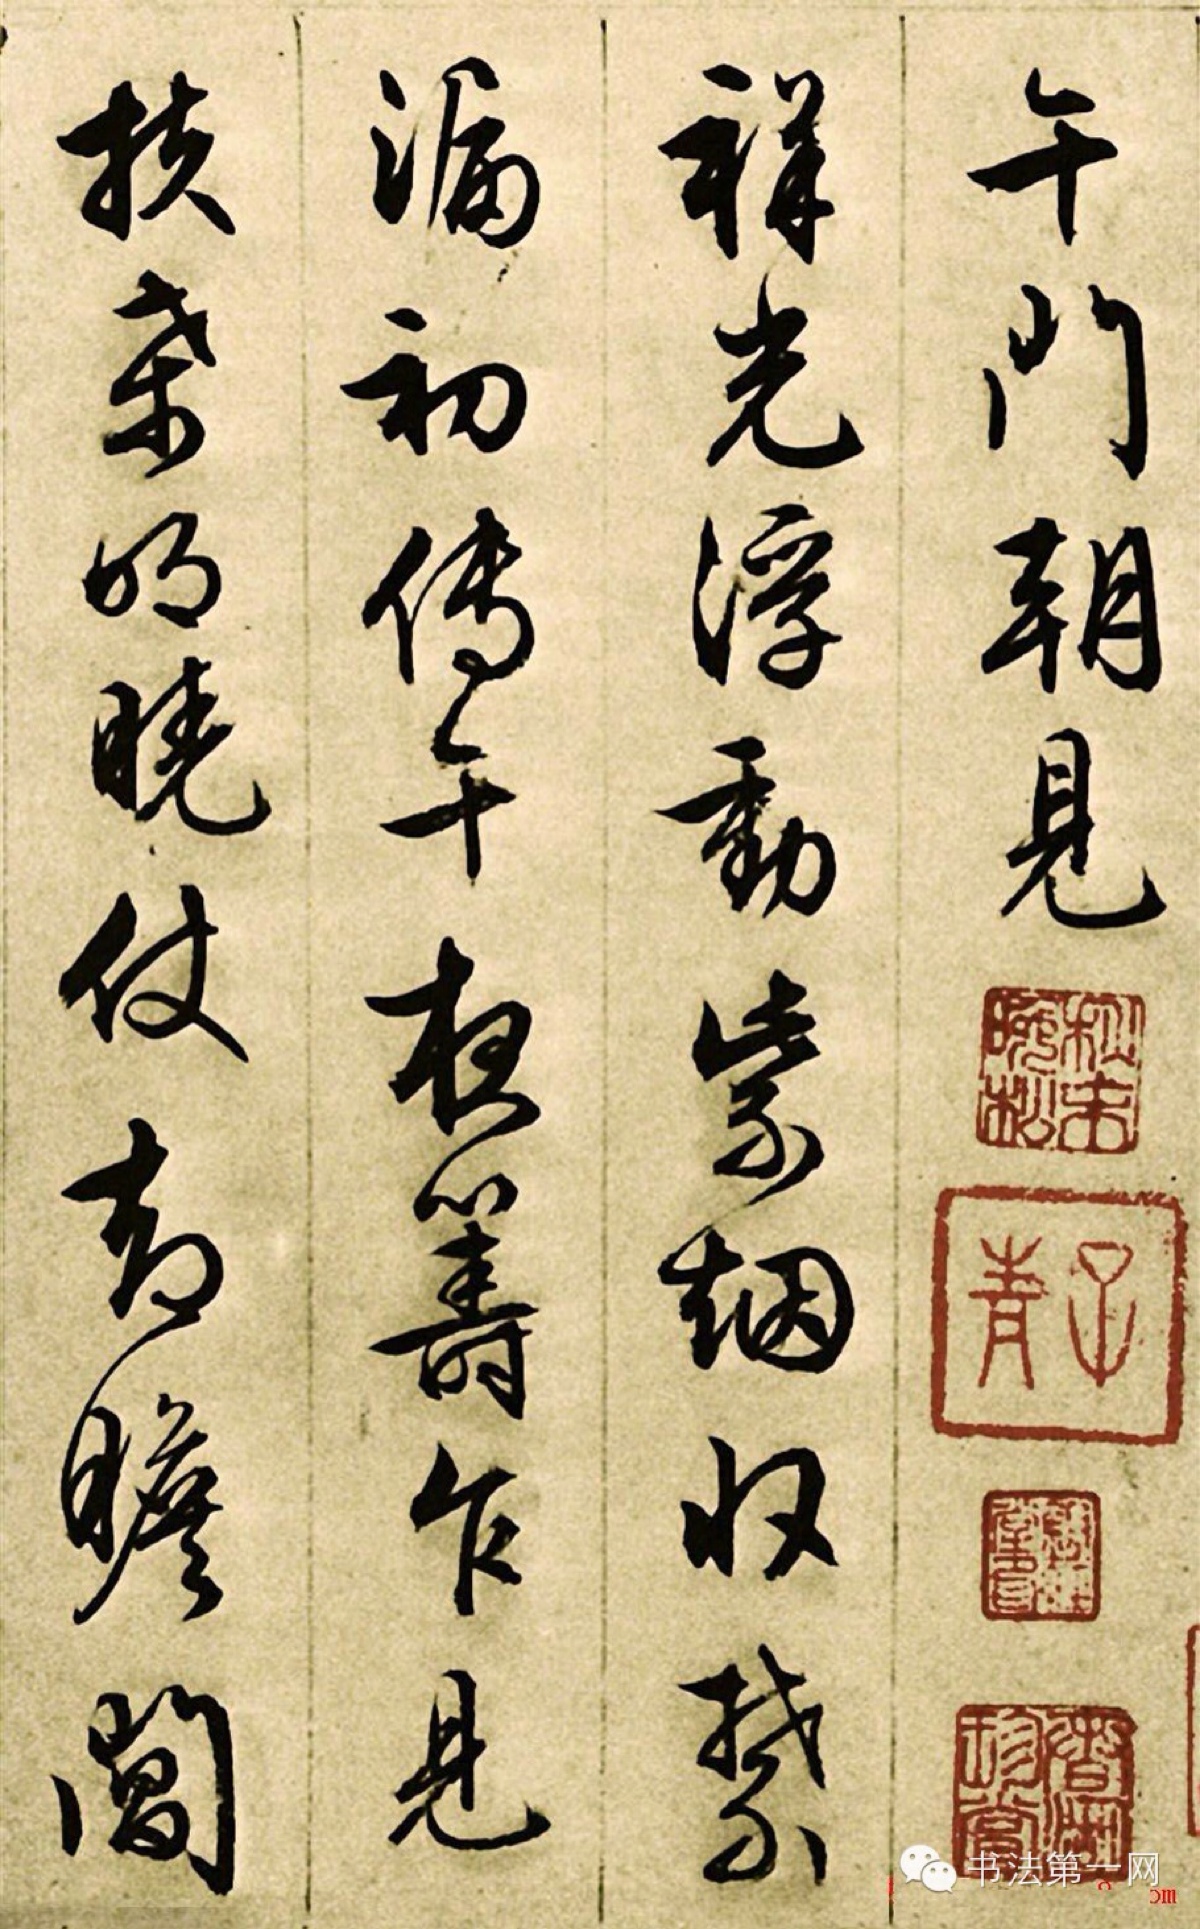 午門朝見
祥光浮動紫烟收禁
漏初傳午夜籌乍見
扶桑明曉仗却瞻閶
子青
书法第一网